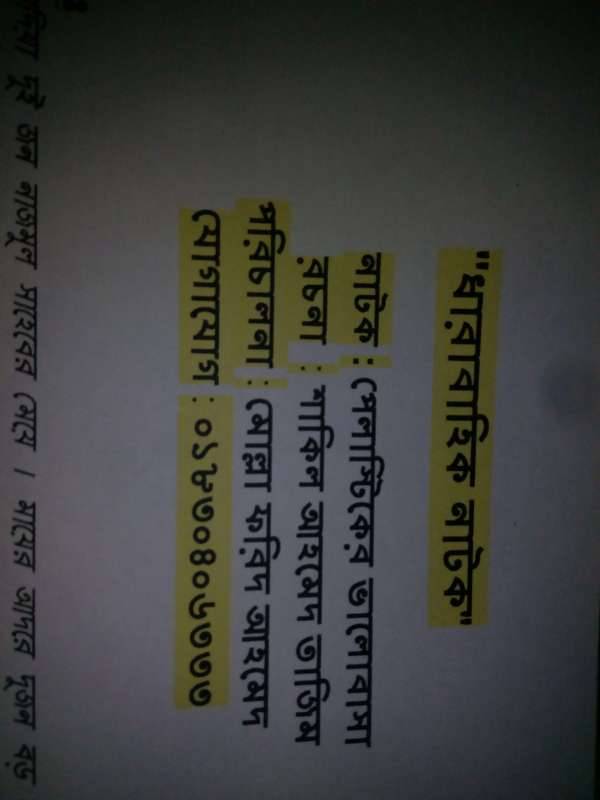 "ধারাবাহিক নাটক"
নাটক : পেলাস্টিকের ভালোবাসা
রচনা : শাকিল আহমেদ তাজিম
পরিচালনা : মোল্লা ফরিদ আহমেদ
যোগাযোগ : ০১৮৭০৪০৬৭৭৭
দুই জন নাজমুল সাহেবের মেয়ে । মায়ের আদরে দুজন বড়